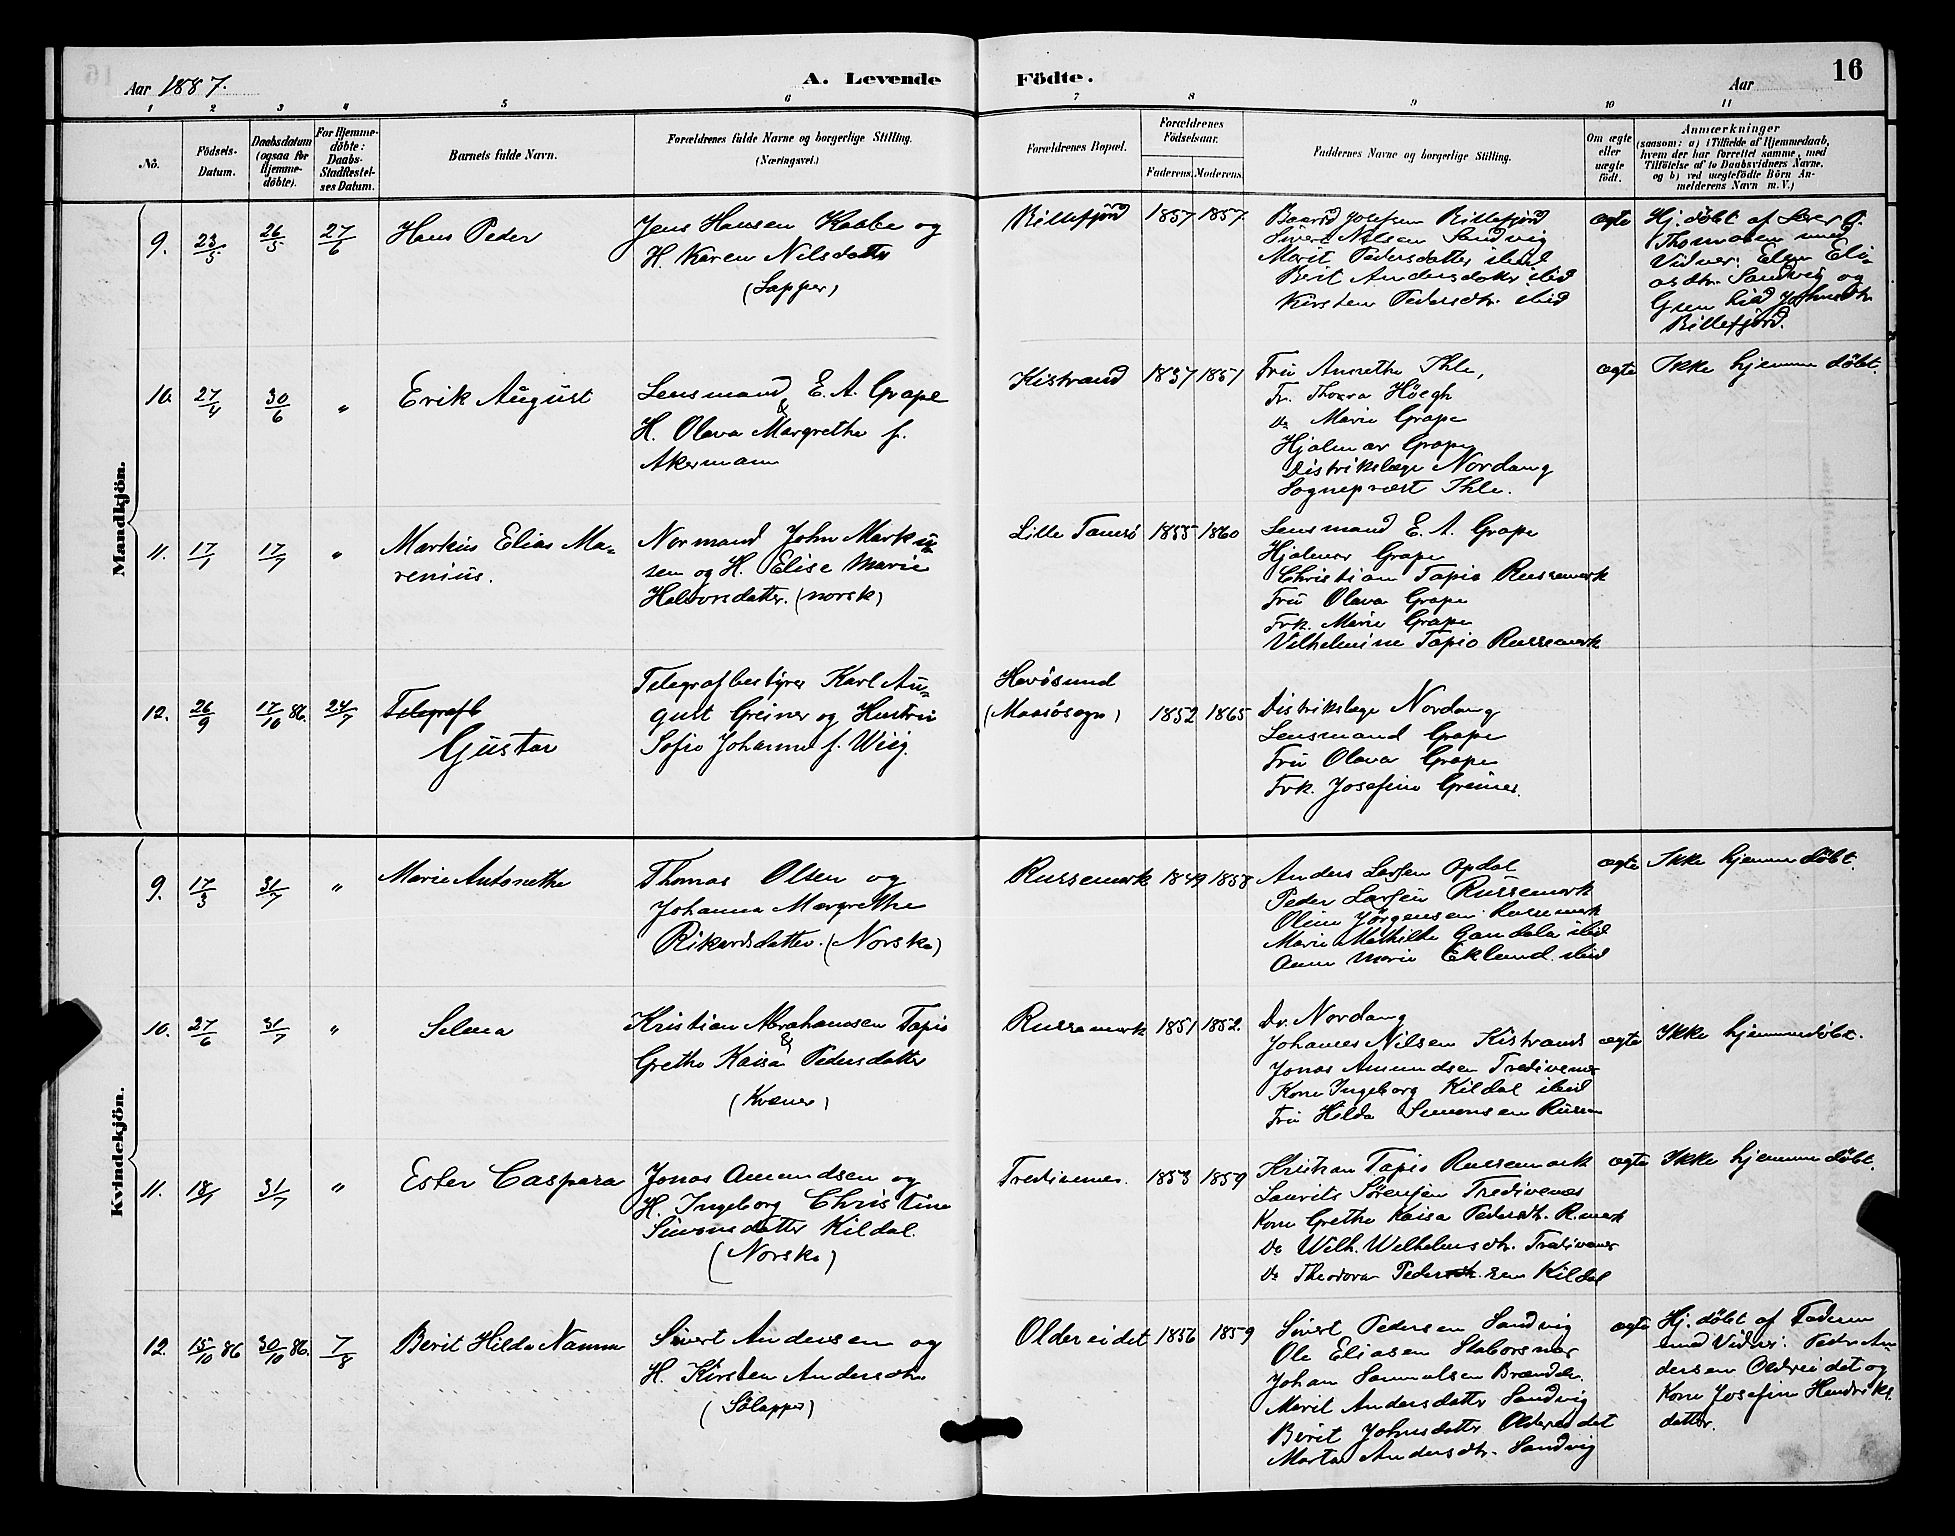 16
Aar 1887.
A. Levende Födte.
Aar
1 2 3 4 5 6 7 8 9 10 11
No.
Födsels-Datum.
Daabsdatum (ogsaa for Hjemme-döbte).
For Hjemme-döbte: Daabs-Stadfæstel-ses Datum.
Barnets fulde Navn.
Forældrenes fulde Navne og borgerlige Stilling.
(Næringsvei.)
Forældrenes Bopæl.
Forældrenes Födselsaar.
Faderens. Moderens.
Faddernes Navne og borgerlige Stilling.
Om ægte eller uægte født.
Anmærkninger
(saasom: a) i Tilfælde af Hjemmedaab,
hvem der har forrettet samme, med
Tilföielse af to Daabsvidners Navne.
og b) ved uægtefödte Börn An-
melderens Navn m. V.)
Mandkjön.
9. 23/5 26/5 27/6 Hans Peder
Jens Hansen Kaabe og
H. Karen Nilsdatter
(Lapper)
Billefjord 1857 1857
Baard Josefsen Billefjord
Sivert Nilsen Sandvig
Marit Pedersdatter ibid
Berit Andersdatter ibid
Kirsten Pedersdtr. ibid
ægte
Hj. döbt af
Thomasen med
Vidner: Elen Eli-
asdtr. Sandvig og
Billefjord.
10. 27/4 30/6 " Erik August
Lensmand E. A. Grape
&
H. Olava Margrethe f.
Akermann
Kistrand 1837 1851
Fru Annethe Ihle,
Fr. Thora Höegh
Do Marie Grape
Hjalmar Grape
Distrikslæge Nordang
Sogneprest Ihle.
ægte
Ikke hjemmedöbt.
11. 17/1 17/7 " Markus Elias Ma-
renius.
Normand John Marku-
sen og H. Elise Marie
Halvorsdatter. (norsk)
Lille Tamsö 1855 1860
Lensmand E. A. Grape
Hjalmar Grape
Christian Tapio Russemark
Fru Olava Grape
Frk. Marie Grape
Vilhelmine Tapio Russemark
12. 26/9 17/10 86. 24/7 Telegrafb
Gustav
Telegrafbestyrer Karl Au-
gust Greiner og Hustru
Sofie Johanne f. Wiig.
Havösund
(Maasösogn) 1852 1865
Distrikslæge Nordang
Lensmand Grape
Fru Olava Grape
Frk. Josefine Greiner.
Kvindekjön.
9. 17/3 31/7 " Marie Antonethe
Thomas Olsen og
Johanna Margrethe
Rikardsdatter. (Norske)
Russemark 1849 1858
Anders Larsen Opdal
Peder Larsen Russemark
Oline Jörgensen Russemark
Marie Mathilde Gandola ibid
Anne Marie Eklund. ibid
ægte Ikke hjemmedöbt.
10. 27/6 31/7 " Selma
Kristian Abrahamsen Tapio
&
Grethe Kaisa Pedersdatter
(Kvæner)
Russemark 1851 1852.
Dr. Nordang
Johannes Nilsen Kistrand
Jonas Amundsen Tredivenes
Kone Ingeborg Kildal ibid
Fru Hilda Simonsen Russem
ægte Ikke hjemmedöbt.
11. 18/1 31/7 " Ester Caspara
Jonas Amundsen og
H. Ingeborg Christine
Simonsdatter Kildal.
(Norske)
Tredivenes. 1853 1859
Kristian Tapio Russemark
Laurits Sörensen Tredivenes
Kone Grethe Kaisa Pedersdtr. R.mark
Do Wilh. Wilhelmsdtr. Tredivenes
Do Theodora Pedersdtr. sen Kildal
ægte Ikke hjemmedöbt.
12. 15/10 86 30/10 86. 7/8 Berit Hilda Nanna
Sivert Andersen og
H. Kirsten Andersdtr.
(Sölapper)
Oldereidet 1856 1859
Sivert Pedersen Sandvig
Ole Eliasen Staborsnes
Johan Samuelsen Brændelv
Marit Andersdatter Sandvig
Berit Johnsdatter Oldereidet
Marta Andersdtr. Sandvig
ægte
Hj. döbt af Faderen
med Vidner: Peder An-
dersen Oldereidet og
Kone Josefine Henriks-
datter.